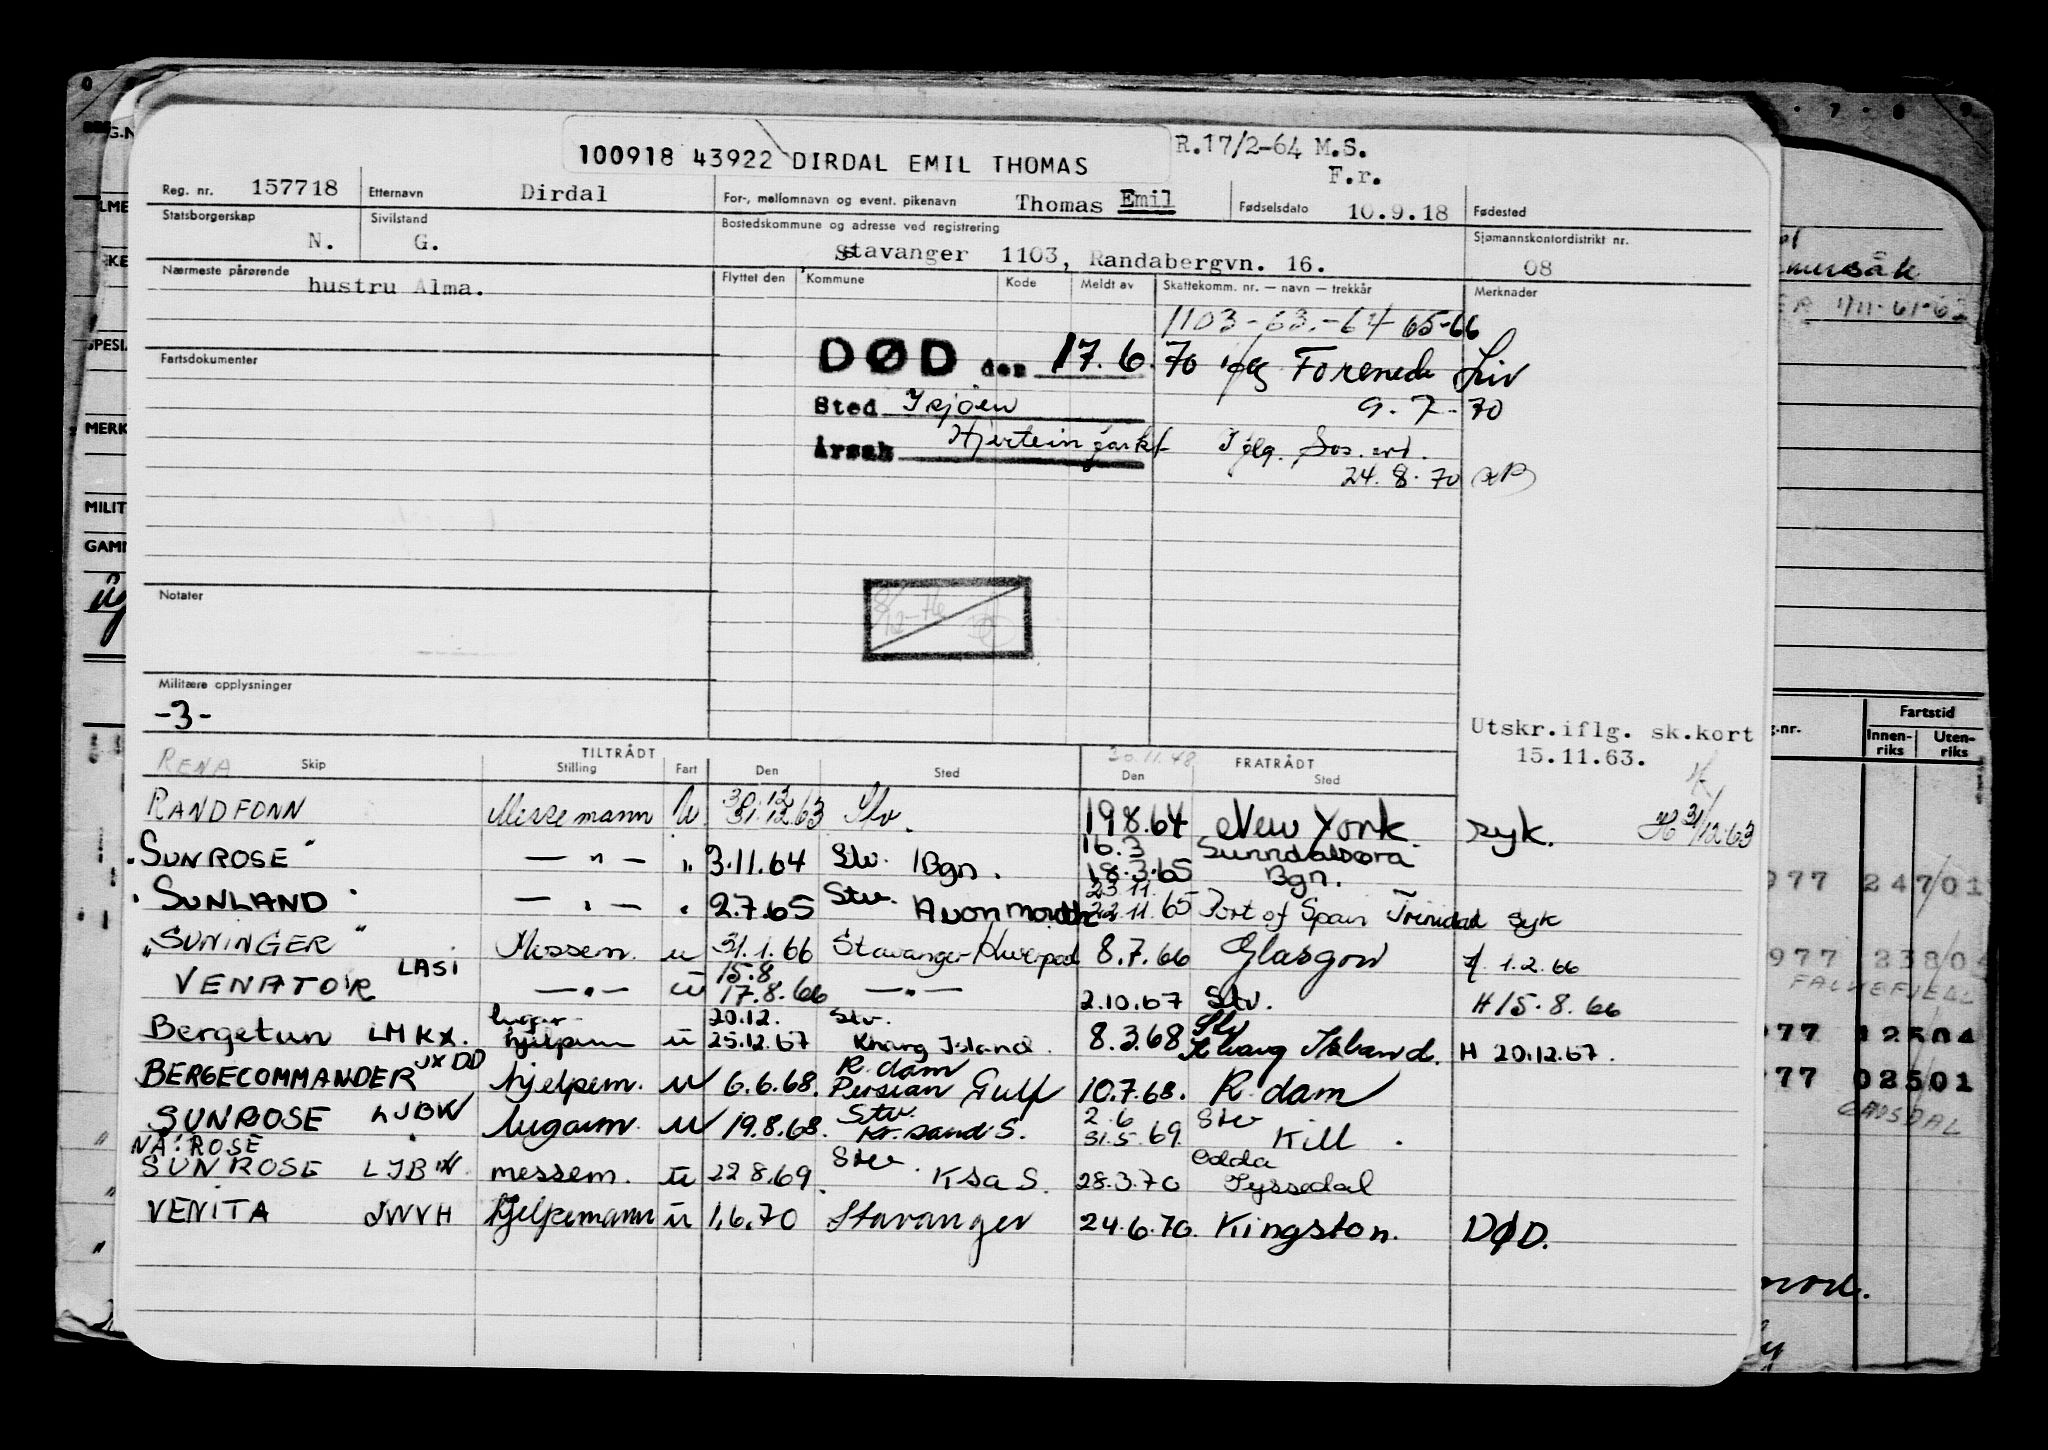 100918 43922 DIRDAL EMIL THOMAS
R.17/2-64 M.S.
F.r.
Reg. nr. 157718 Etternavn Dirdal For-, mellomnavn og event. pikenavn Thomas Emil Fødselsdato 10.9.18 Fødested
Statsborgerskap N. Sivilstand G. Bostedskommune og adresse ved registrering Stavanger 1103, Randabergvn. 16. Sjømannskontordistrikt nr. 08
Nærmeste pårørende hustru Alma. Flyttet den Kommune Kode Meldt av Skattekomm. nr. — navn — trekkår Merknader
1103-63.-64 65-66
Fartsdokumenter
DØD den 17.6.70 Forenede Liv
Sted 9.7-70
Årsak
24.8.70
Notater
Militære opplysninger
-3-
Utskr.iflg. sk.kort
15.11.63.
TILTRÅDT FRATRÅDT
RENA Skip Stilling Fart Den Sted 30.11.48 Den Sted
RANDFONN Messemann U 31.12.63 Stv. 19 8.64 New York. syk. H 31/12.63
16.3 Sunndalsøra
SUNROSE " — " — " 3.11.64 Stv. Bgn. 18.3.65 Bgn.
23.11.
SUNLAND — " — " 2.7.65 Stv. Avonmouth 22.11.65 Port of Spain Trinidad syk
"SUNINGER" Messem. u 31.1.66 Stavanger-Liverpool 8.7.66 Glasgow 1.2.66
15.8
VENATOR LASI — " — u 17.8.66 — " — 2.10.67 Stv. H 15.8.66
lugar- 20.12. Stv. Stv
Bergetun LMKX. hjelpem u 25.12.67 Kharg Island. 8.3.68 Kharg Island. H 20.12.67.
R.dam
BERGECOMMANDER JXDD hjelpem. u 6.6.68. Persian Gulf 10.7.68. R.dam
Stv. 2.6 Stv
SUNROSE LJBW lugarm. u 19.8.68. Kr.sand S. 31.5.69 Kill.
NÅ: ROSE Stv. Odda
SUNROSE LJBW. messem. u 22 8.69. Ksa S. 28.3.70 Tyssedal
VENITA JWVH hjelpemann u 1.6.70 Stavanger 24.6.70 Kingston. DØD.
Fartstid
Innen- Uten-
riks riks
977 247/01
977 238/0
FALKEFJELL
077 12504
77 02501